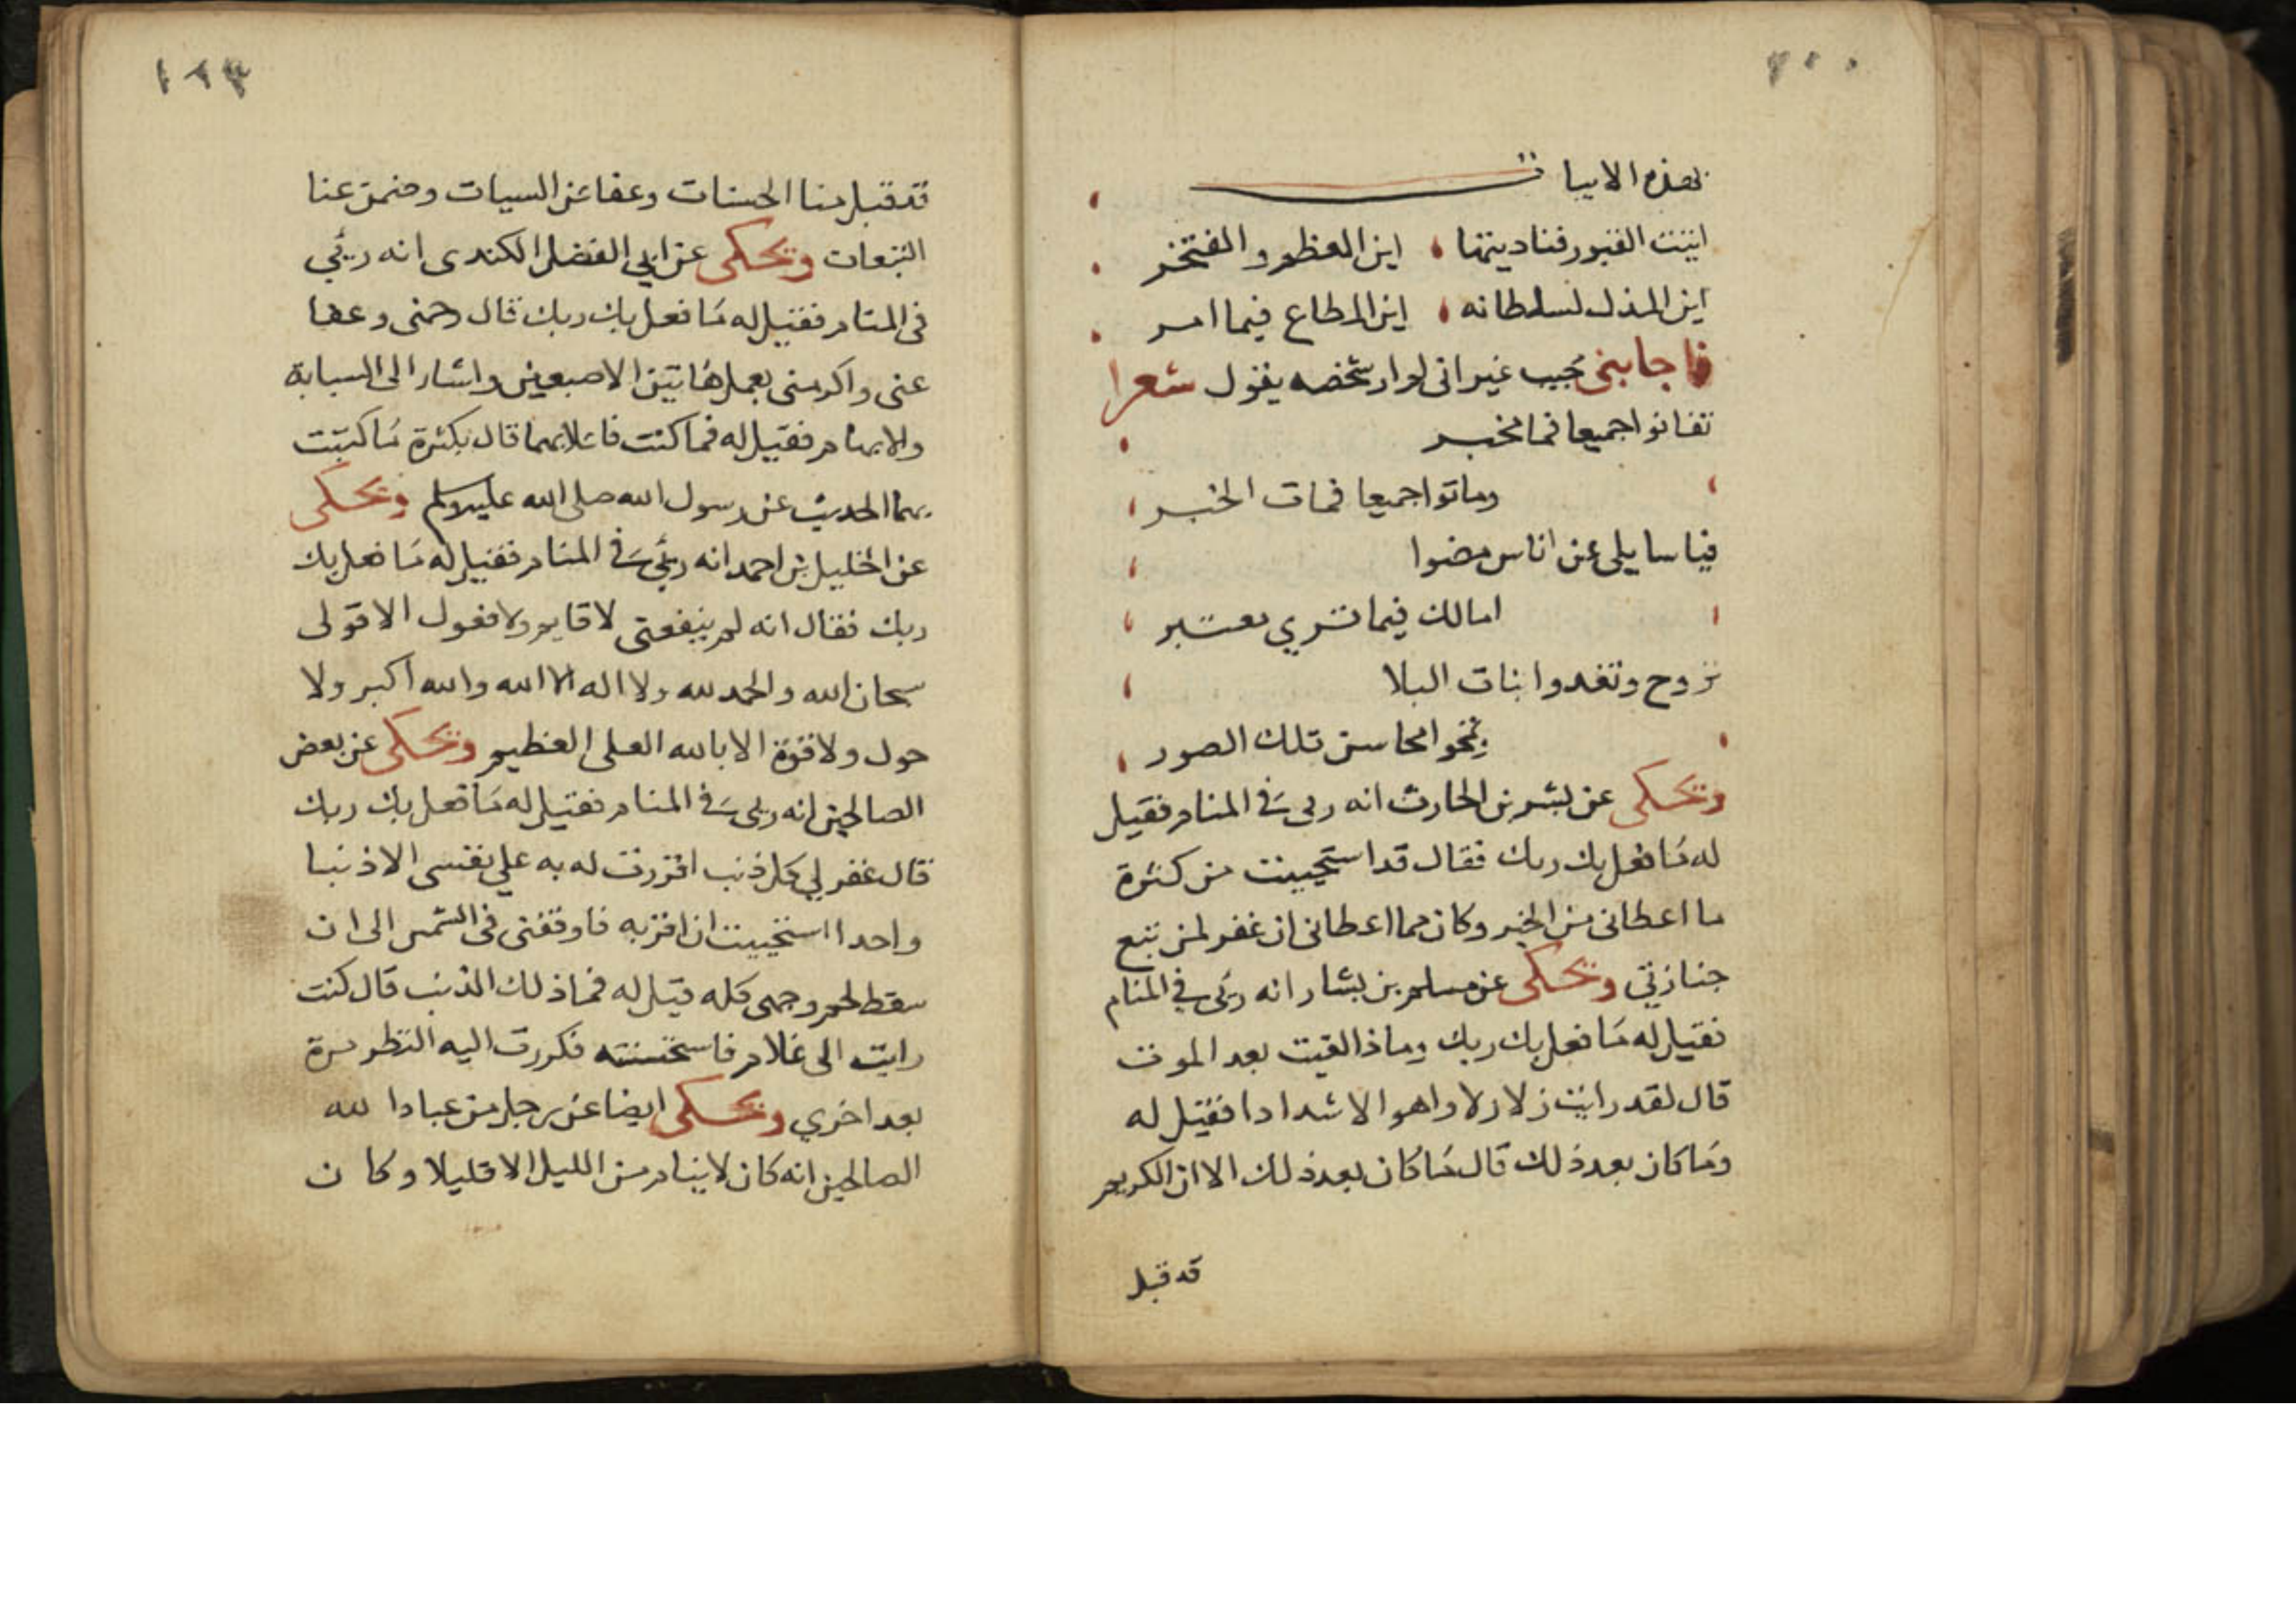 بهذه الابيات
اتيت القبور فناديتها اين المعظم والمفتخر
اين المذل لسلطانه اين المطاع فيما امر
فاجابنى مجيب غير انى لم ار شخصه يقول شعرا
تفانوا جميعا فما مخبر
وماتوا جميعا فمات الخبر
فيا سايلى عن اناس مضوا
امالك فيما تري معتبر
تروح وتغدوا بنات البلا
بمحوا محاسن تلك الصور
ويحكى عن بشر بن الحارث انه رىى فى المنام فقيل
له ما فعل بك ربك فقال قد استحييت من كثرة
ما اعطانى من الخير وكان مما اعطانى ان غفر لمن تبع
جنازتي ويحكى عن مسلم بن بشار انه رئى في المنام
فقيل له ما فعل بك ربك وماذا لقيت بعد الموت
قال لقد رايت زلازلا واهوالا شدادا فقيل له
وما كان بعد ذلك قال ما كان بعد ذلك الا ان الكريم
قد قبل
١٢٣
قد قبل منا الحسنات وعفا عن السيات وضمن عنا
التبعات ويحكى عن ابي الفضل الكندى انه رئي
فى المنام فقيل له ما فعل بك ربك قال رحمنى وعفا
عنى واكرمنى بعمل هاتين الاصبعين واشار الى السبابة
والابهام فقيل له فما كنت فاعلا بهما قال بكثرة ما كتبت
بهما الحديث عن رسول الله صلى الله عليه وسلم ويحكى
عن الخليل بن احمد انه رئي فى المنام فقيل له ما فعل بك
ربك فقال انه لم ينفعنى لا قايم ولا فعول الا قولى
سبحان الله والحمد لله ولا اله الا الله والله اكبر ولا
حول ولا قوة الا بالله العلى العظيم ويحكى عن بعض
الصالحين انه رىى فى المنام فقيل له ما فعل بك ربك
قال غفر لي كل ذنب اقررت له به علي نفسى الا ذنبا
واحدا استحييت ان اقر به فاوقفنى فى الشمس الى ان
سقط لحم وجهى كله قيل له فما ذلك الذنب قال كنت
رايت الى غلام فاستحسنته فكررت اليه النظر مرة
بعد اخري ويحكى ايضا عن رجل من عباد الله
الصالحين انه كان لا ينام من الليل الا قليلا وكان